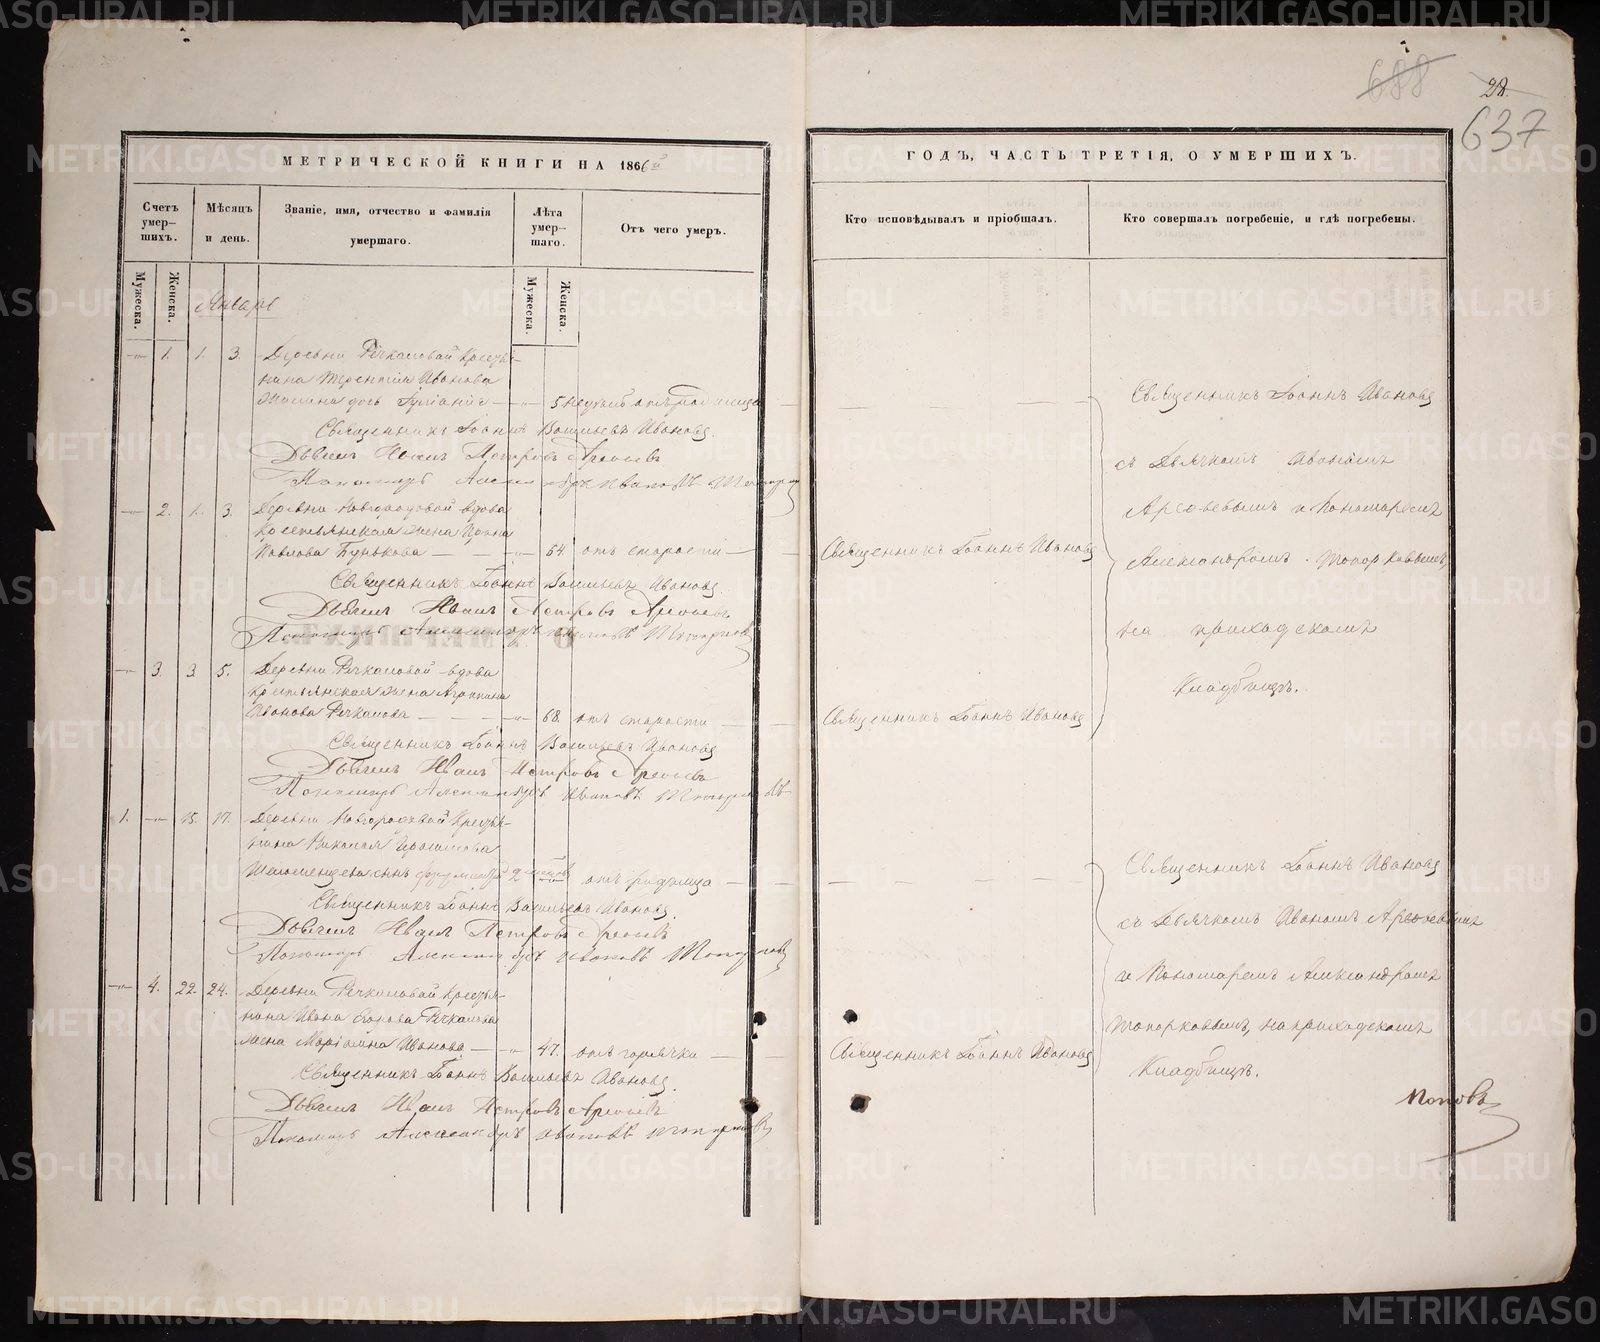 688
28.
637
МЕТРИЧЕСКОЙ КНИГИ НА 1866й
Счетъ умер-
шихъ.
Мѣсяцъ
и день.
Званіе, имя, отчество и фамилія
умершаго.
Лѣта
умер-
шаго.
Отъ чего умеръ.
Мужеска.
Женска.
Мужеска.
Женска.
Январь
1. 1. 3. Деревни Речкаловой Крестья-
нина Терентія Иванова
дочь 5
Священникъ Іоаннъ Васильевъ Ивановъ.
Дьячекъ Иванъ Петровъ
Пономарь Александръ Ивановъ
2. 1. 3. Деревни Новгородовой вдова
Крестьянская жена
Павлова Бунькова 64 отъ старости
Священникъ Іоаннъ Васильевъ Ивановъ
Дьячекъ Иванъ Петровъ
Пономарь Александръ Ивановъ Топорковъ
3. 3. 5. Деревни Речкаловой вдова
Крестьянская жена Агрипина
Иванова Речкалова 68. отъ старости
Священникъ Іоаннъ Васильевъ Ивановъ
Дьячекъ Иванъ Петровъ
Пономарь Александръ Ивановъ Топорковъ
1. 15. 17. Деревни Новгородовой Крестья-
нина Николая
сынъ 2 отъ родимца
Священникъ Іоаннъ Васильевъ Ивановъ.
Дьячекъ Иванъ Петровъ
Пономарь Александръ Ивановъ Топорковъ
4. 22. 24. Деревни Речкаловой Крестья-
нина Ивана Речкалова
жена Маріамна Иванова 47. отъ горячки
Священникъ Іоаннъ Васильевъ Ивановъ.
Дьячекъ Иванъ Петровъ
Пономарь Александръ Ивановъ Топорковъ
ГОДЪ, ЧАСТЬ ТРЕТІЯ, О УМЕРШИХЪ.
Кто исповѣдывалъ и пріобщалъ.
Кто совершалъ погребеніе, и гдѣ погребены.
Священникъ Іоаннъ Ивановъ
съ Дьячкомъ Иваномъ
и Пономаремъ
Священникъ Іоаннъ Ивановъ
Александромъ Топорковымъ,
на приходскомъ
Кладбищѣ.
Священникъ Іоаннъ Ивановъ
Священникъ Іоаннъ Ивановъ
съ Дьячкомъ Иваномъ
и Пономаремъ Александромъ
Топорковымъ, на приходскомъ
Священникъ Іоаннъ Ивановъ
Кладбищѣ.
Поповъ
METRIKI.GASO-URAL.RU